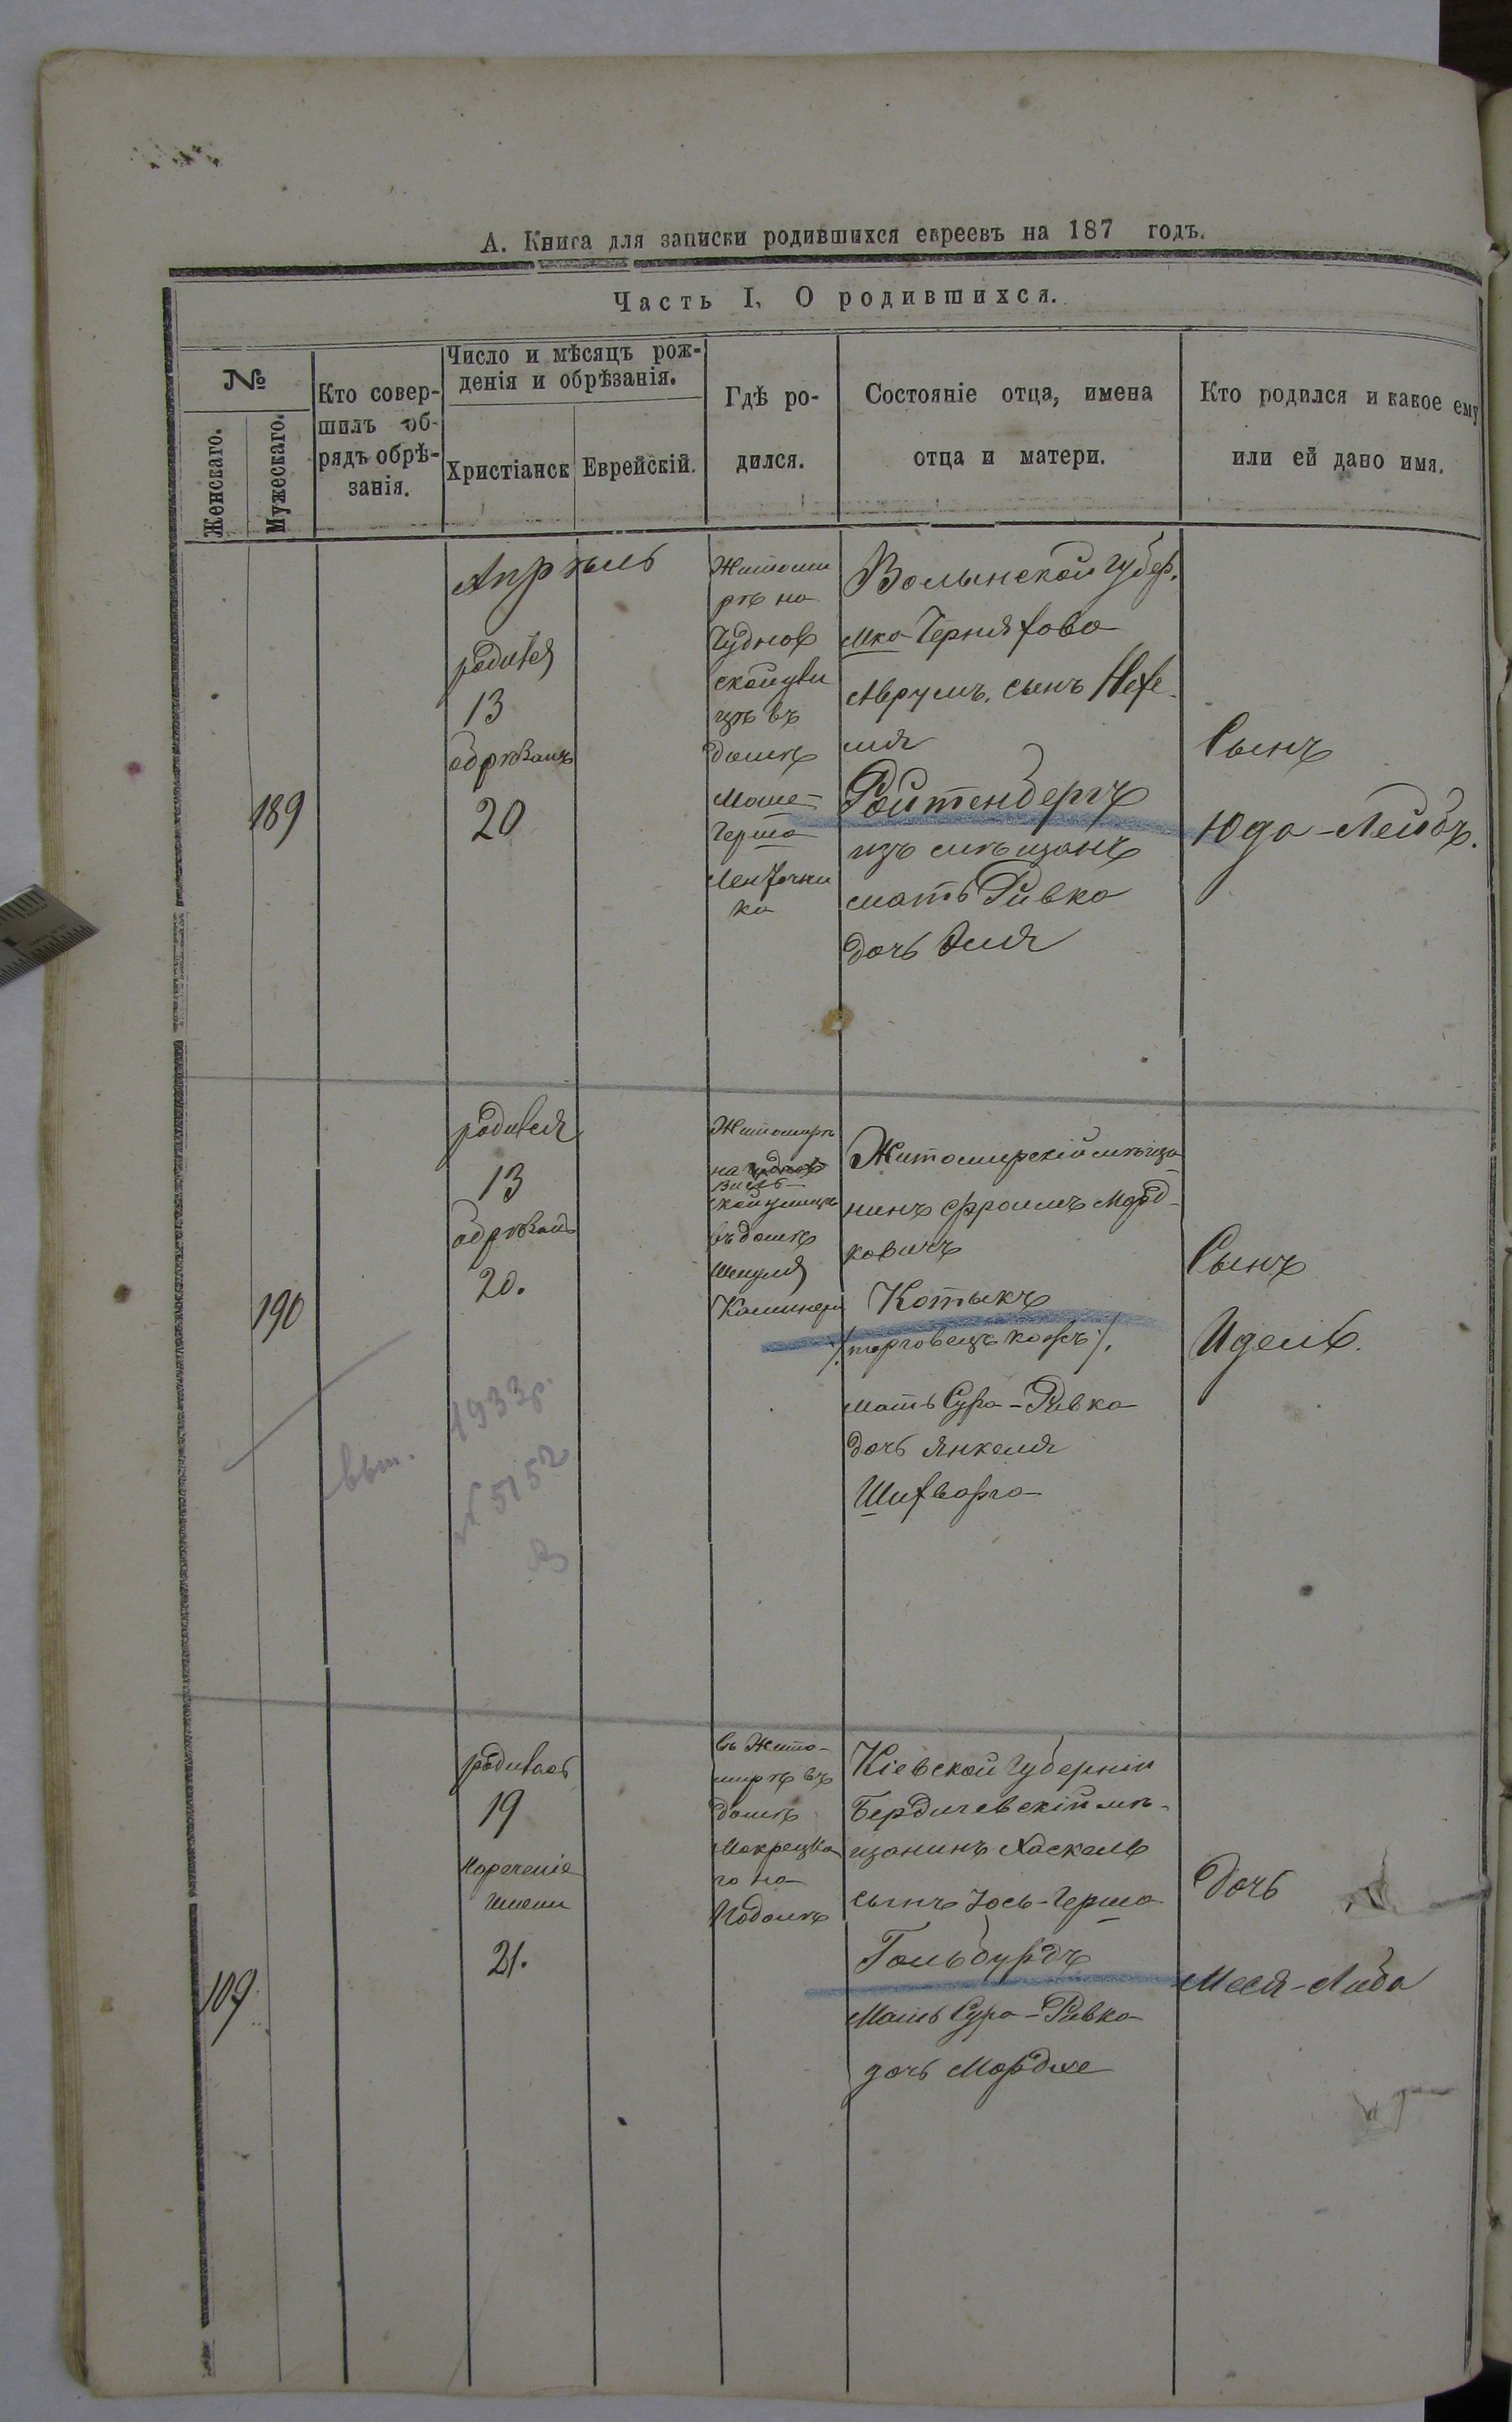 А. Книга для записки родившихся евреевъ на 187 годъ.
Часть I, О родившихся.
№
Женскаго.
Мужескаго.
Кто совер-
шилъ об-
рядъ обрѣ-
занія.
Число и мѣсяцъ рож-
денія и обрѣзанія.
Христіанск
Еврейскій.
Гдѣ ро-
дился.
Состояніе отца, имена
отца и матери.
Кто родился и какое ему
или ей дано имя.
189
Апрѣль
родився
13
обрѣзанъ
20
Житоми
рѣ на
Чуднов
ской ули
цѣ въ
домѣ
Моше-
Герша
Волынской губер.
Мка Черняхова
Аврумъ, сынъ Нехе-
мя
Ройтенбергъ
изъ мѣщанъ
мать Ривка
дочь Эля
Сынъ
Юда-Лейбъ.
190
родився
13
обрѣзанъ
20.
вып. 1933 р.
№ 5152
Житомирѣ
на
ской улицѣ
въ домѣ
Шмуля
Каминера
Житомирскій мѣща-
нинъ Фроимъ Морд-
ковичъ
Котыкъ
/торговецъ кожъ/.
мать Сура-Ривка
дочь Янкеля
Шихварга
Сынъ
Идель.
109
родилась
19
нареченіе
имени
21.
въ Жито-
мирѣ въ
домѣ
Мокрецка
го на
Подолѣ
Кіевской губерніи
Бердичевскій мѣ-
щанинъ Хаскель
сынъ Іось-Герша
Гольдбурдъ
Мать Сура-Ривка
дочь Мордхе
Дочь
Меся-Люба